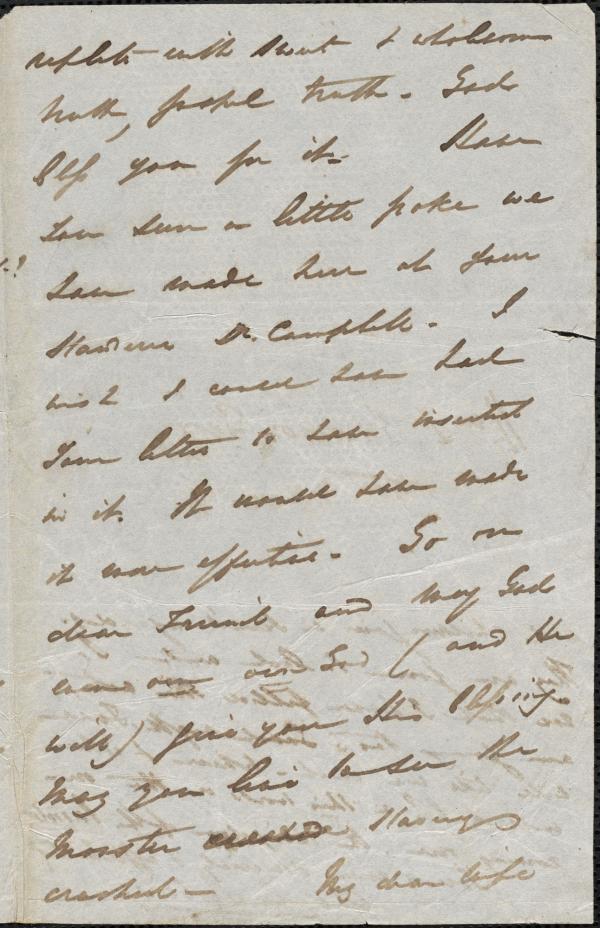 replete with sweet & wholesome
truth, gospel truth. God
bless you for it. Have
you seen a little poke we
have made here at your
Dr. Campbell. I
wish I could have had
your letter to have inserted
in it. It would have made
it more effective. Go on
dear Friend and may God
even our own God (and He
will) give you His blessing
May you live to see the
Monster Slavery
crushed— My dear wife